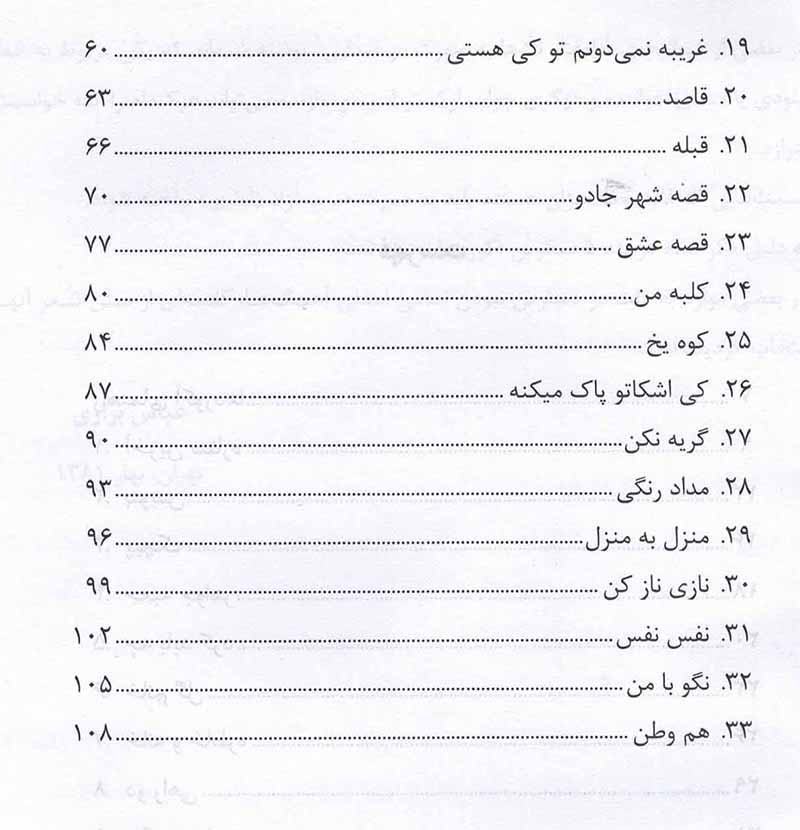 ۱۹. غریبه نمی‌دونم تو کی هستی ........ ۶۰
۲۰. قاصد ........ ۶۳
۲۱. قبله ........ ۶۶
۲۲. قصه شهر جادو ........ ۷۰
۲۳. قصه عشق ........ ۷۷
۲۴. کلبه من ........ ۸۰
۲۵. کوه یخ ........ ۸۴
۲۶. کی اشکاتو پاک میکنه ........ ۸۷
۲۷. گریه نکن ........ ۹۰
۲۸. مداد رنگی ........ ۹۳
۲۹. منزل به منزل ........ ۹۶
۳۰. نازی ناز کن ........ ۹۹
۳۱. نفس نفس ........ ۱۰۲
۳۲. نگو با من ........ ۱۰۵
۳۳. هم وطن ........ ۱۰۸